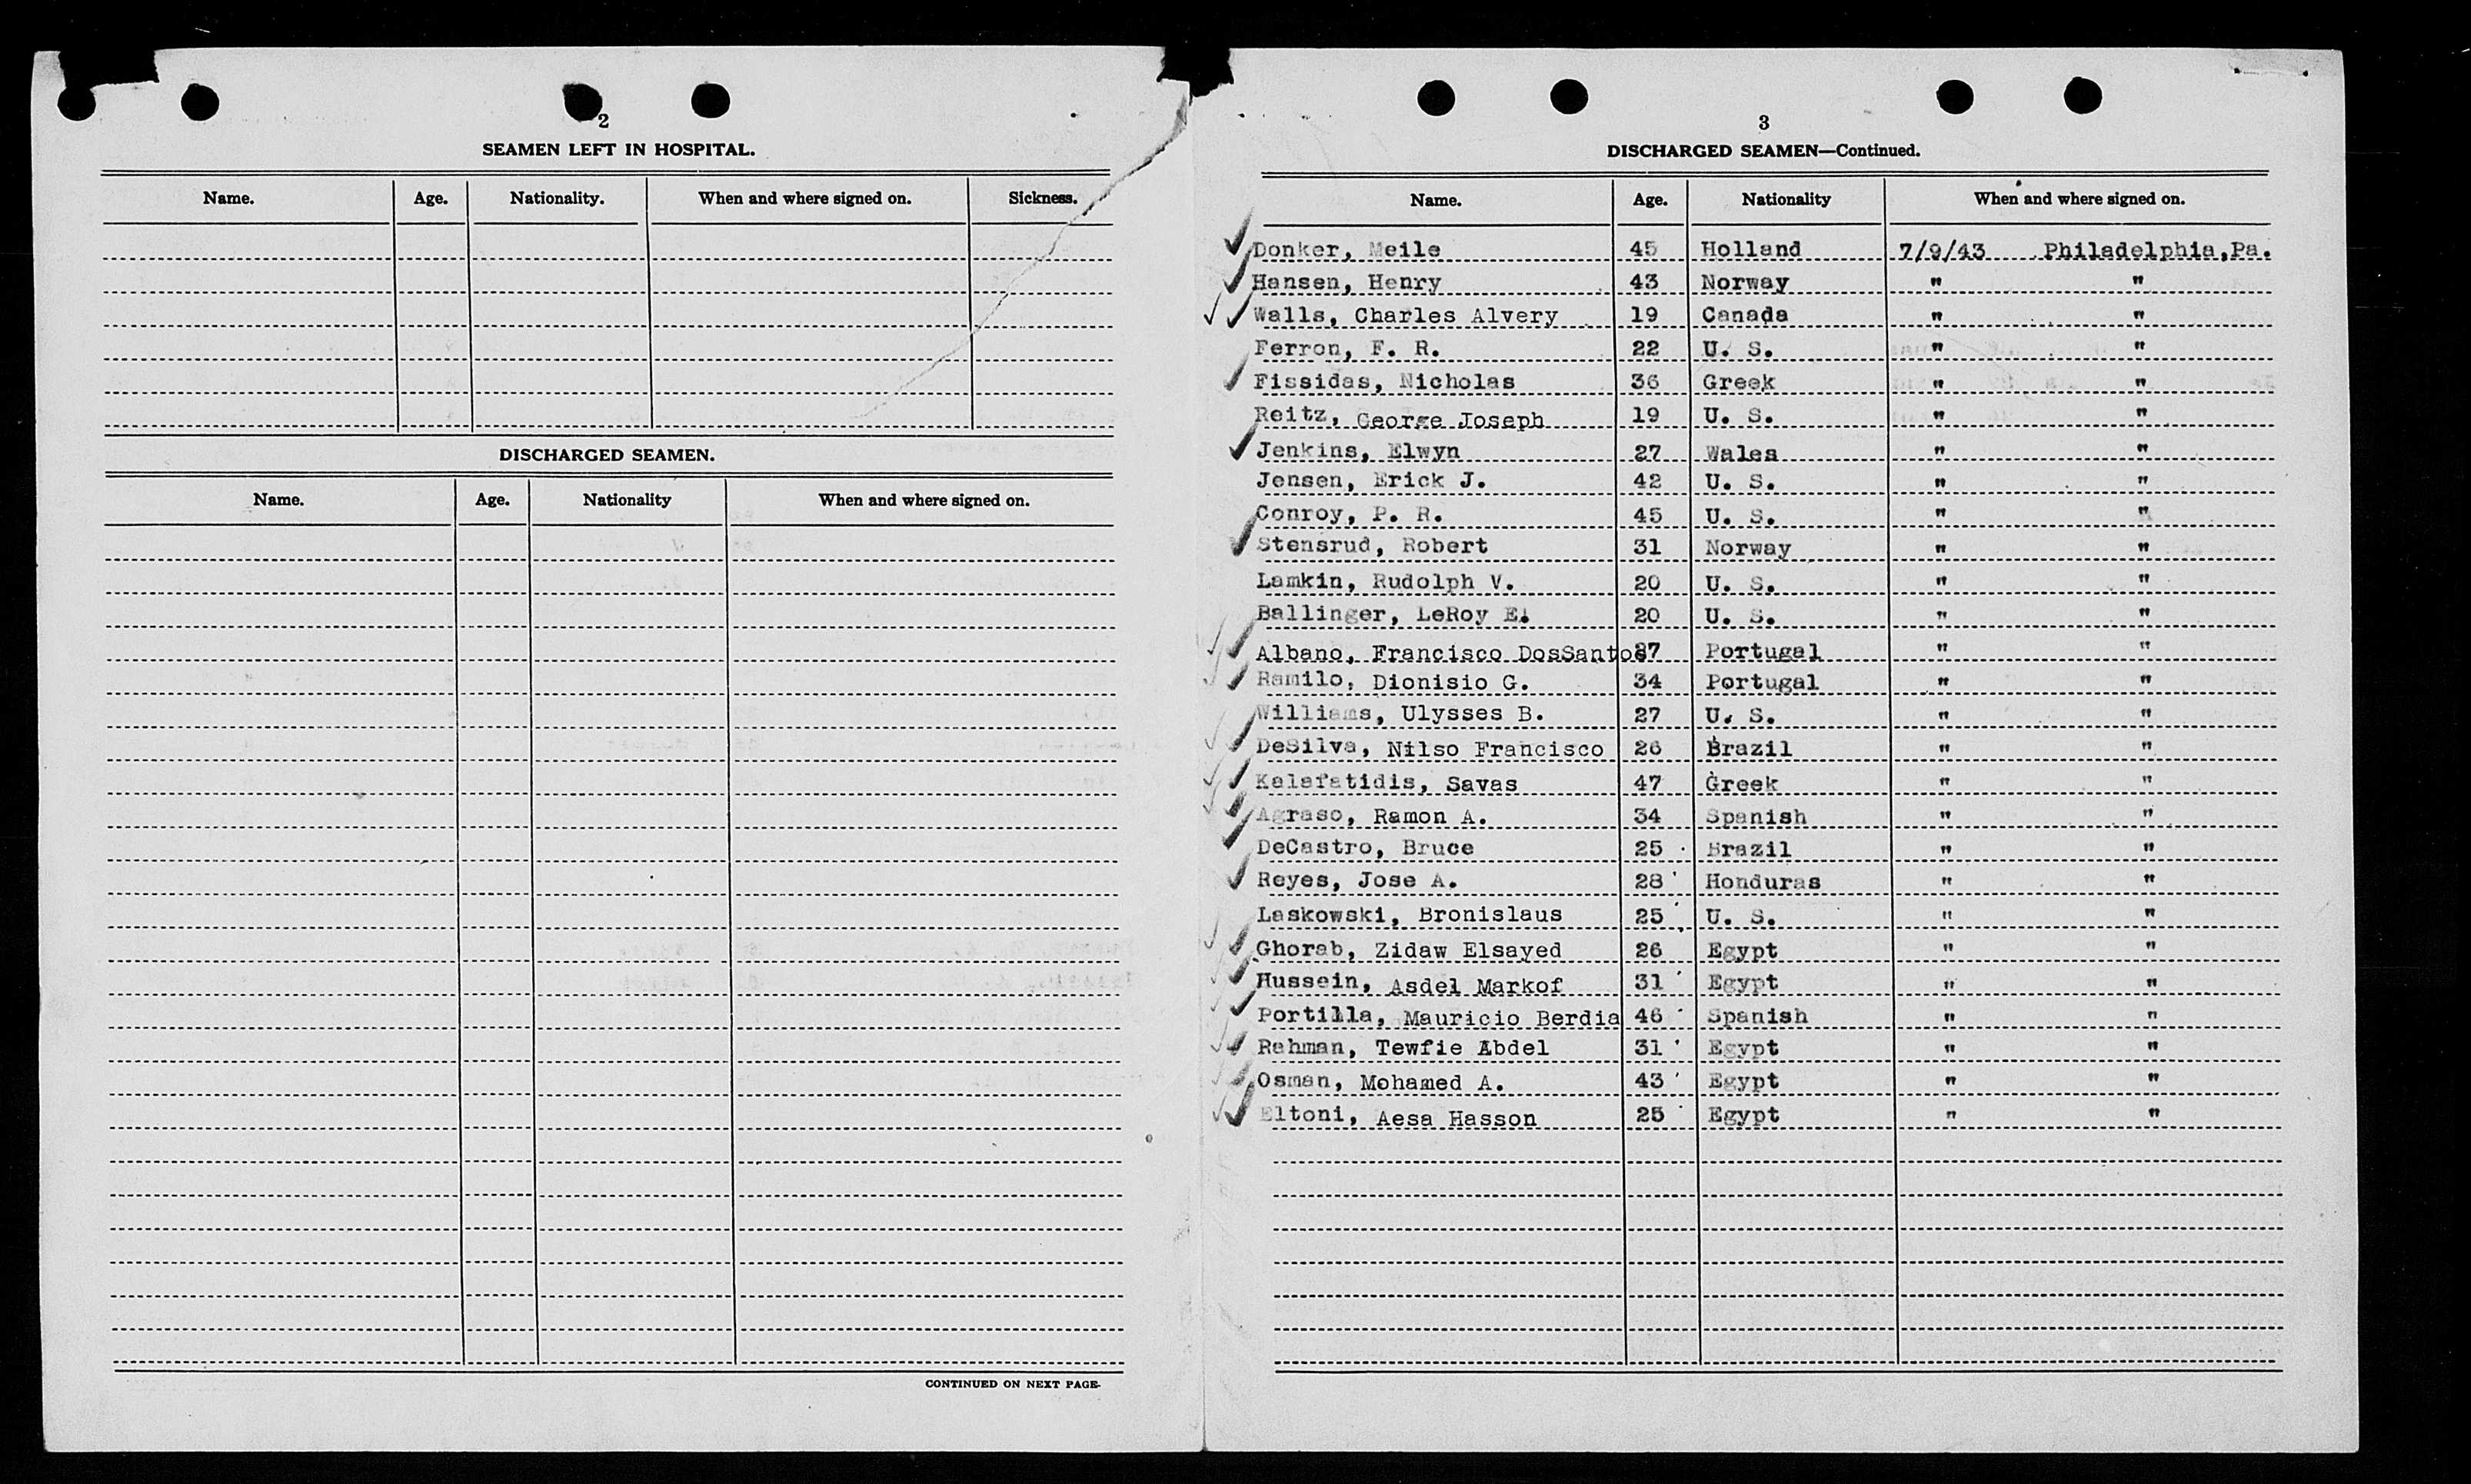 2
SEAMEN LEFT IN HOSPITAL.
Name. Age. Nationality. When and where signed on. Sickness.
DISCHARGED SEAMEN.
Name. Age. Nationality When and where signed on.
CONTINUED ON NEXT PAGE.
3
DISCHARGED SEAMEN—Continued.
Name. Age. Nationality When and where signed on.
Donker, Meile 45 Holland 7/9/43 Philadelphia,Pa.
Hansen, Henry 43 Norway " "
Walls, Charles Alvery 19 Canada " "
Ferron, F. R. 22 U. S. " "
Fissidas, Nicholas 36 Greek " "
Reitz, George Joseph 19 U. S. " "
Jenkins, Elwyn 27 Wales " "
Jensen, Erick J. 42 U. S. " "
Conroy, P. R. 45 U. S. " "
Stensrud, Robert 31 Norway " "
Lamkin, Rudolph V. 20 U. S. " "
Ballinger, LeRoy E. 20 U. S. " "
Albano, Francisco DosSantos 37 Portugal " "
Ramilo, Dionisio G. 34 Portugal " "
Williams, Ulysses B. 27 U. S. " "
DeSilva, Nilso Francisco 26 Brazil " "
Kalafatidis, Savas 47 Greek " "
Agraso, Ramon A. 34 Spanish " "
DeCastro, Bruce 25 Brazil " "
Reyes, Jose A. 28 Honduras " "
Laskowski, Bronislaus 25 U. S. " "
Ghorab, Zidaw Elsayed 26 Egypt " "
Hussein, Asdel Markof 31 Egypt " "
Portilla, Mauricio Berdia 46 Spanish " "
Rahman, Tewfie Abdel 31 Egypt " "
Osman, Mohamed A. 43 Egypt " "
Eltoni, Aesa Hasson 25 Egypt " "